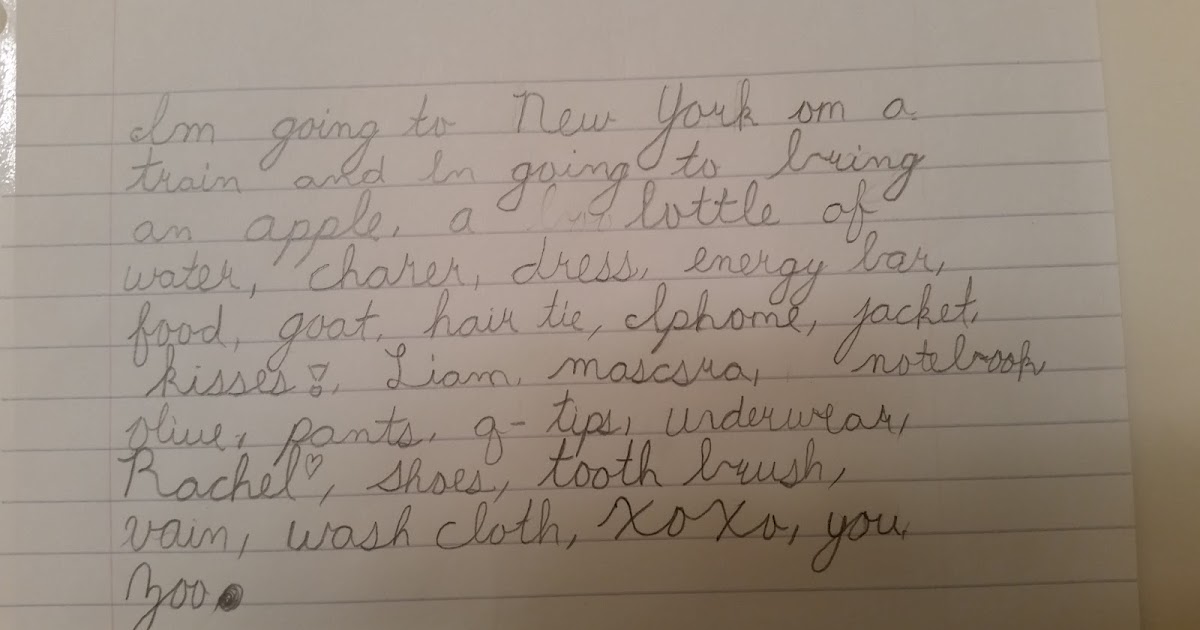 Im going to New York om a
train and In going to bring
an apple, a bottle of
water, charer, dress, energy bar,
food, goat, hair tie, Iphome, jacket,
kisses!, Liam, mascsra, notebook,
olive, pants, q-tips, underwear,
Rachel♡, shoes, tooth brush,
vain, wash cloth, XoXo, you,
Zoo.